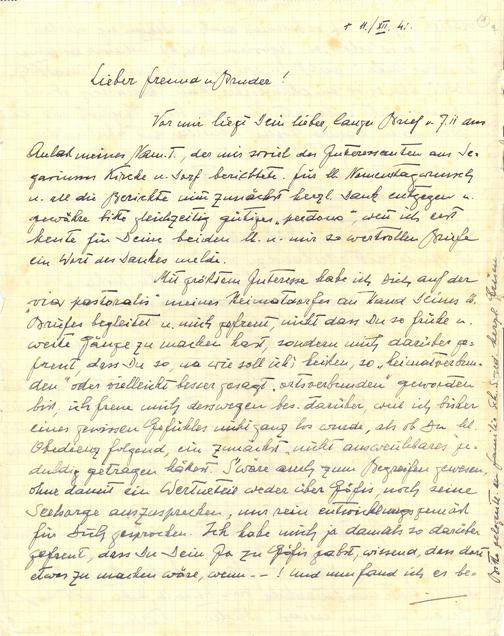 + 11/XII. 41.
Lieber Freund u. Bruder!
Vor mir liegt Dein lieber, langer Brief v. 7.11 aus
Anlaß meines Nam.T., der mir soviel des Interessanten aus
Kirche u. Dorf berichtete. Für lb. Namenstagswunsch
u. all die Berichte nimm zunächst herzl. Dank entgegen u.
gewähre bitte gleichzeitig gütiges „perdono", wenn ich erst
heute für Deine beiden lb. u. mir so wertvollen Briefe
ein Wort des Dankes melde.
Mit größtem Interesse habe ich Dich auf der
„via pastoralis" meines Heimatdorfes an Hand Deines lb.
Briefes begleitet u. mich gefreut, nicht dass Du so frühe u.
weite Gänge zu machen hast, sondern mich darüber ge-
freut, dass Du so, na wie soll ich's heißen, so „heimatverbun-
den" oder vielleicht besser gesagt „ortsverbunden" geworden
bist, ich freue mich desswegen bes. darüber, weil ich bisher
eines gewissen Gefühles nicht ganz los wurde, als ob Du lb.
Obedienz folgend, ein zunächst „nicht ausweichbares" ge-
duldig getragen hättest. S'wäre auch zum Begreifen gewesen,
ohne damit ein Werturteil weder über Göfis, noch seine
Seelsorge auszusprechen, nur rein entwicklungsgemäß
für Dich gesprochen. Ich habe mich ja damals so darüber
gefreut, dass Du Dein Ja zu Göfis gabst, wissend, dass dort
etwas zu machen wäre, wenn -- ! Und nun fand ich es be-
Bitte gelegentl.